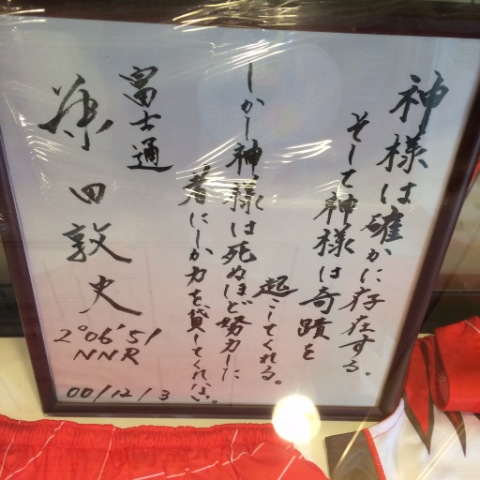 神様は確かに存在する。
そして神様は奇蹟を
起こしてくれる。
しかし神様は死ぬほど努力した
者にしか力を貸してくれない。
富士通
藤田敦史
2°06'51
NNR
00/12/3